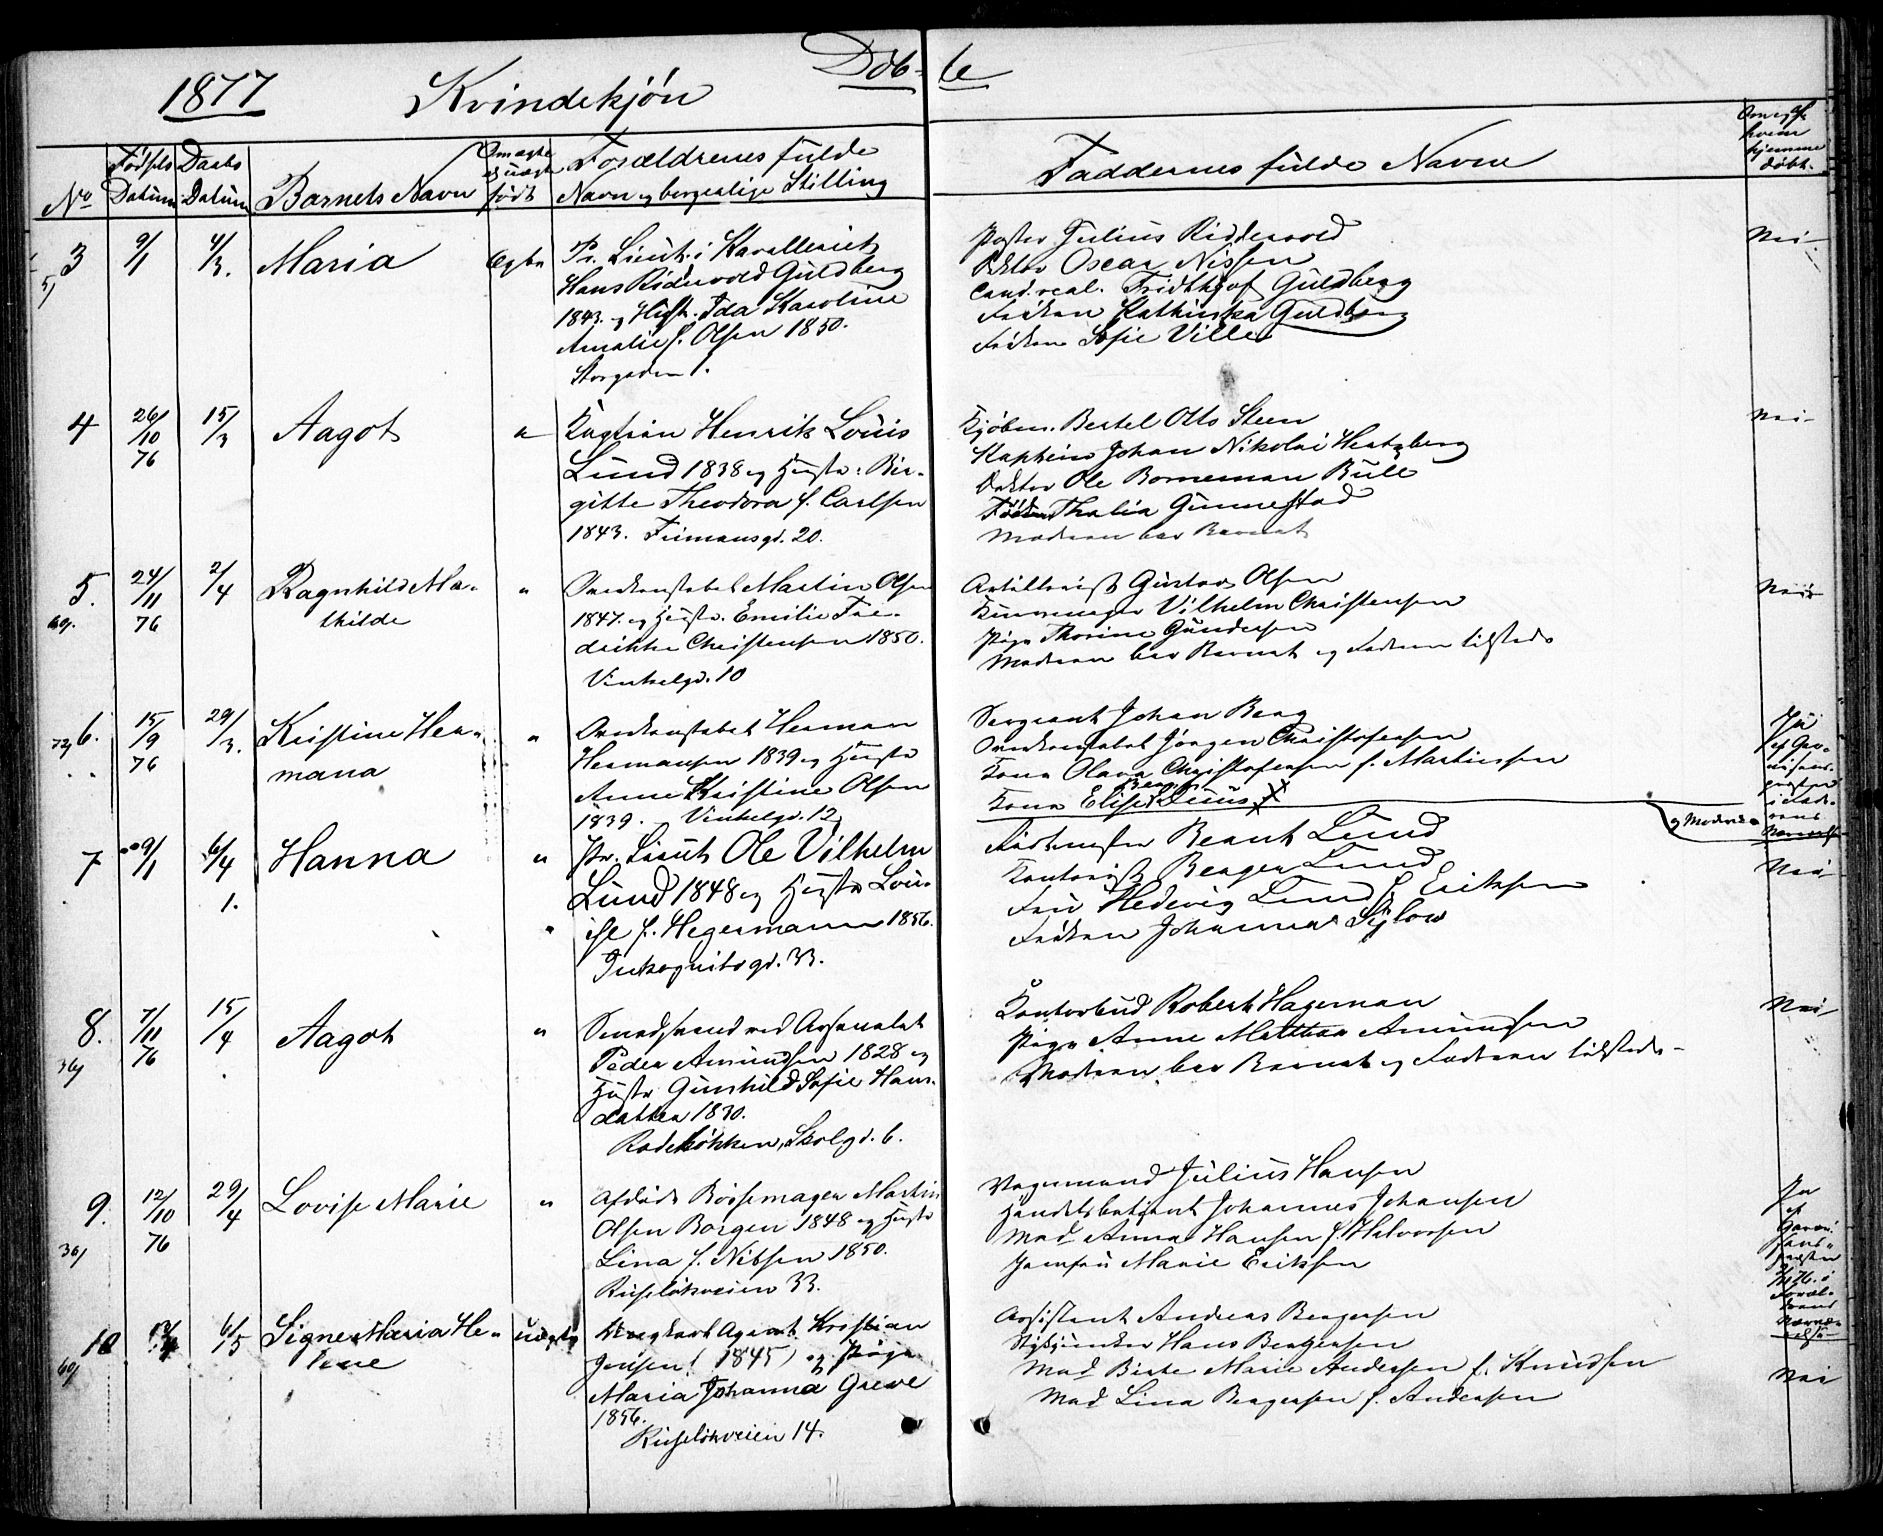 1877 Kvindekjón Döb- te
No
Fódsels Datum
Daabs Datum
Barnets Navn
Om ægte og uægte født
Forældrenes fulde
Navn og borgerlige Stilling
Faddernes fulde Navne
hjemme døbt.
3 9/1 4/3. Maria Egte
Pr. Lieut. i Kavalleriet
Hans Ridervold Guldberg
1843. og Hustr. Ida Karoline
Amalie f. Olsen 1850.
Storgaden 1.
Pastor Julius Riddervold
Doktor Oscar Nissen
Cand. real. Fridthjof Guldberg
Frøken Kathinka Guldberg
Frøken Sofie Ville
Nei
4 26/10 76 15/3 Aagot "
Kaptein Henrik Louis
Lund 1838 og Hustr: Bir-
gitte Theodora f. Carlsen
1843. Frimansgd. 20.
Kjøbm. Bertel Otto Steen
Kaptein Johan Nikolai Hertzberg
Doktor Ole Borneman Bull
Frøken Thalia Gunnestad
Modren bar Barnet
Nei
5. 24/11 76 2/4 Ragnhild Ma-
thilde "
Overkonstabel Martin Olsen
1847. og Hustr. Emilie Fre-
drikke Christensen 1850.
Vinkelgd. 10
Artillerist Gustav Olsen
Vilhelm Christensen
Pige Thorine Gundersen
Modren bar Barnet og Fadren tilstede
Nei
6. 15/9 76 29/3. Kristine Her-
mana "
Overkonstabel Herman
Hermansen 1839 og Hustr
Anne Kristine Olsen
1839. Vinkelgd. 12
Sergeant Johan Berg
Overkonstabel Jörgen Christofersen
Kone Olava Christofersen f. Martinsen
Kone Elise
og Modren
Ja
7 9/1 6/4 1. Hanna "
Pr. Lieut Ole Vilhelm
Lund 1848 og Hustr Lou-
ise f. Hegermann 1856.
Inkognitogd. 33.
Bernt Lund
Kontorist Berger Lund
Fru Hedevig Lund f. Eriksen
Frøken Johanna Sylow
Nei
8. 7/11 76 15/4 Aagot "
Smedsvend ved Arsenalet
Peder Amundsen 1828 og
Hustr Gunhild Sofie Hans-
datter 1830.
Rodeløkken, Skolgd. 6.
Kontorbud Robert Hageman
Pige Anne Mathea Amundsen
Modren bar Barnet og Fadren tilstede-
Nei
9. 12/10 76 29/4 Lovise Marie "
Afdøde Bøssemager Martin
Olsen Borgen 1848 og Hustr
Lina f. Nilsen 1850.
Ruseløkveien 33.
Vognmand Julius Hansen
Handelsbetjent Johannes Johansen
Mad Anna Hansen f. Halvorsen
Jomfru Marie Eriksen
Ja
10 6/5 Signe Maria He-
lene uægte
Agent Kristian
Jensen (1845) og Pige
Maria Johanna Greve
1856.
Ruseløkveien 14.
Assistent Andreas Bergersen
Stykjunker Hans Bergersen
Mad Birte Marie Andersen f. Knudsen
Mad Lina Bergersen f. Andersen
Nei